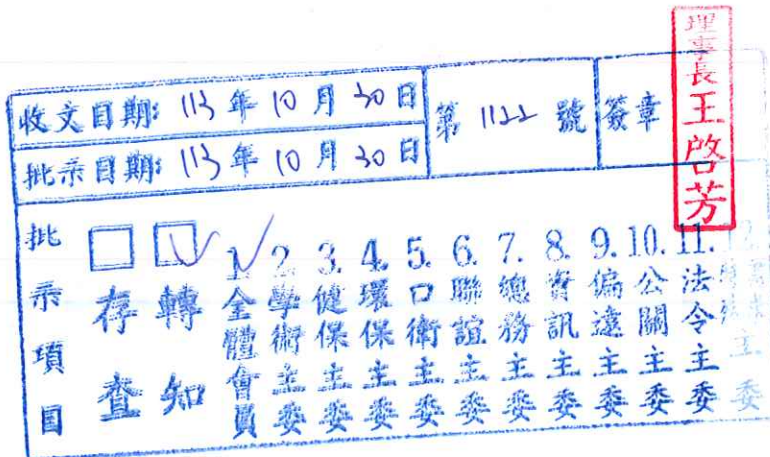 理事長王啟芳
收文日期: 113年10月30日
第 1122 號
簽章
批示日期: 113年10月30日
批示項目
存查
轉知
1.全體會員
2.學術主委
3.健保主委
4.環保主委
5.口衛主委
6.聯誼主委
7.總務主委
8.資訊主委
9.偏遠主委
10.公關主委
11.法令主委
12.
主委